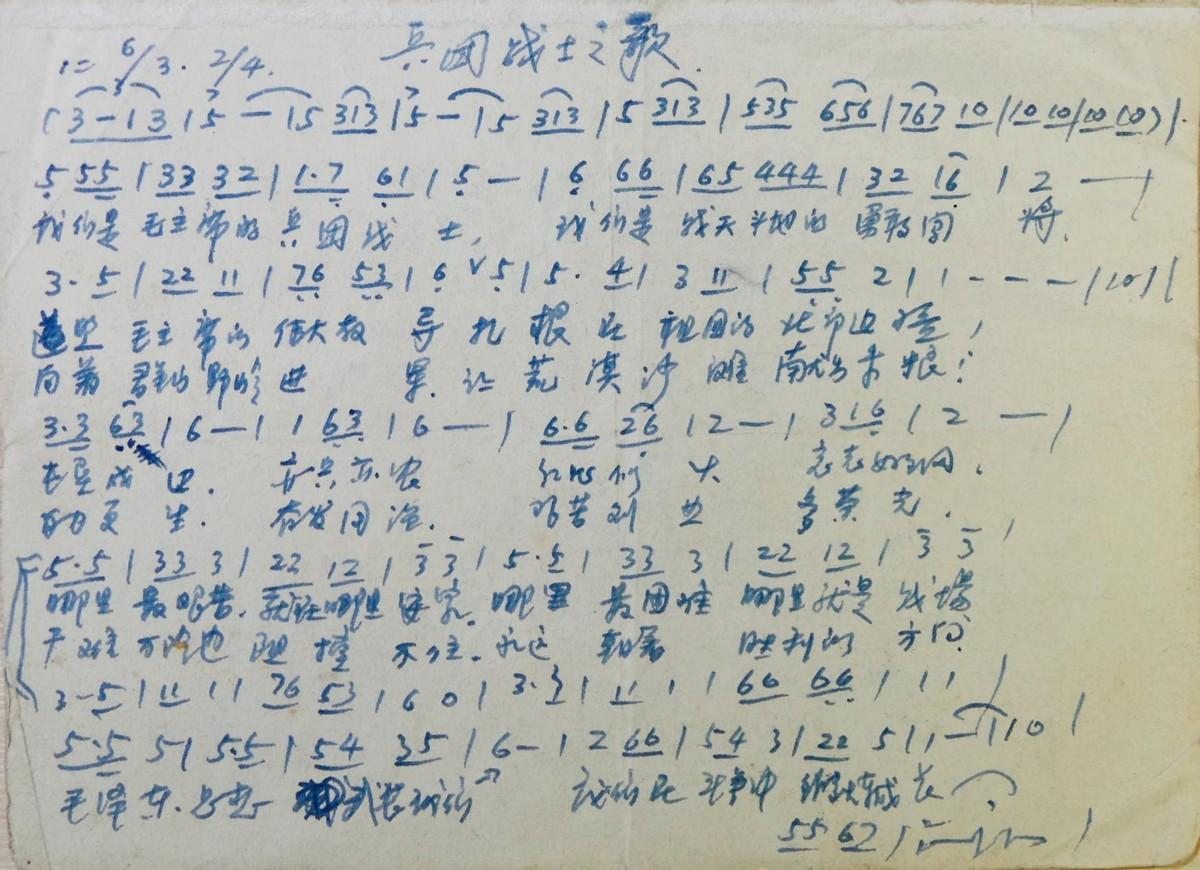 兵团战士之歌
1= 6/3. 2/4.
(3-13|5-|5 313|5-|5 313|5 313|535 656|767 10|10 10|10 10)|
5 55|33 32|1·7 61|5-|6 66|65 444|32 16|2-|
我们是毛主席的兵团战士, 我们是战天斗地的勇敢闯将.
3·5|22 11|76 53|6 ∨5|5·4|3 11|55 2|1---|10||
遵照毛主席的伟大教导扎根在祖国的北部边疆,
向着 进军.让荒漠沙滩 粮!
3·3 63|6-|1 63|6-|6·6 26|2-|3 16|2-|
屯垦戍边. 亦兵亦农 红心 大 志 .
自力更生. 奋发图强. 艰苦创业 多荣光.
5·5|33 3|22 12|3 3|5·5|33 3|22 12|3 3|
哪里最艰苦.就在哪里安家.哪里最困难哪里就是战场
千难万险也阻挡不住.永远朝着胜利的方向.
3-5|11 1|76 53|6 0|3·3|11 1|66 66|1 1|
5·5 5|5·5|54 35|6-|2 66|54 3|22 5|1-|10|
毛泽东思想武装我们 我们在斗争中 成长
55 67|